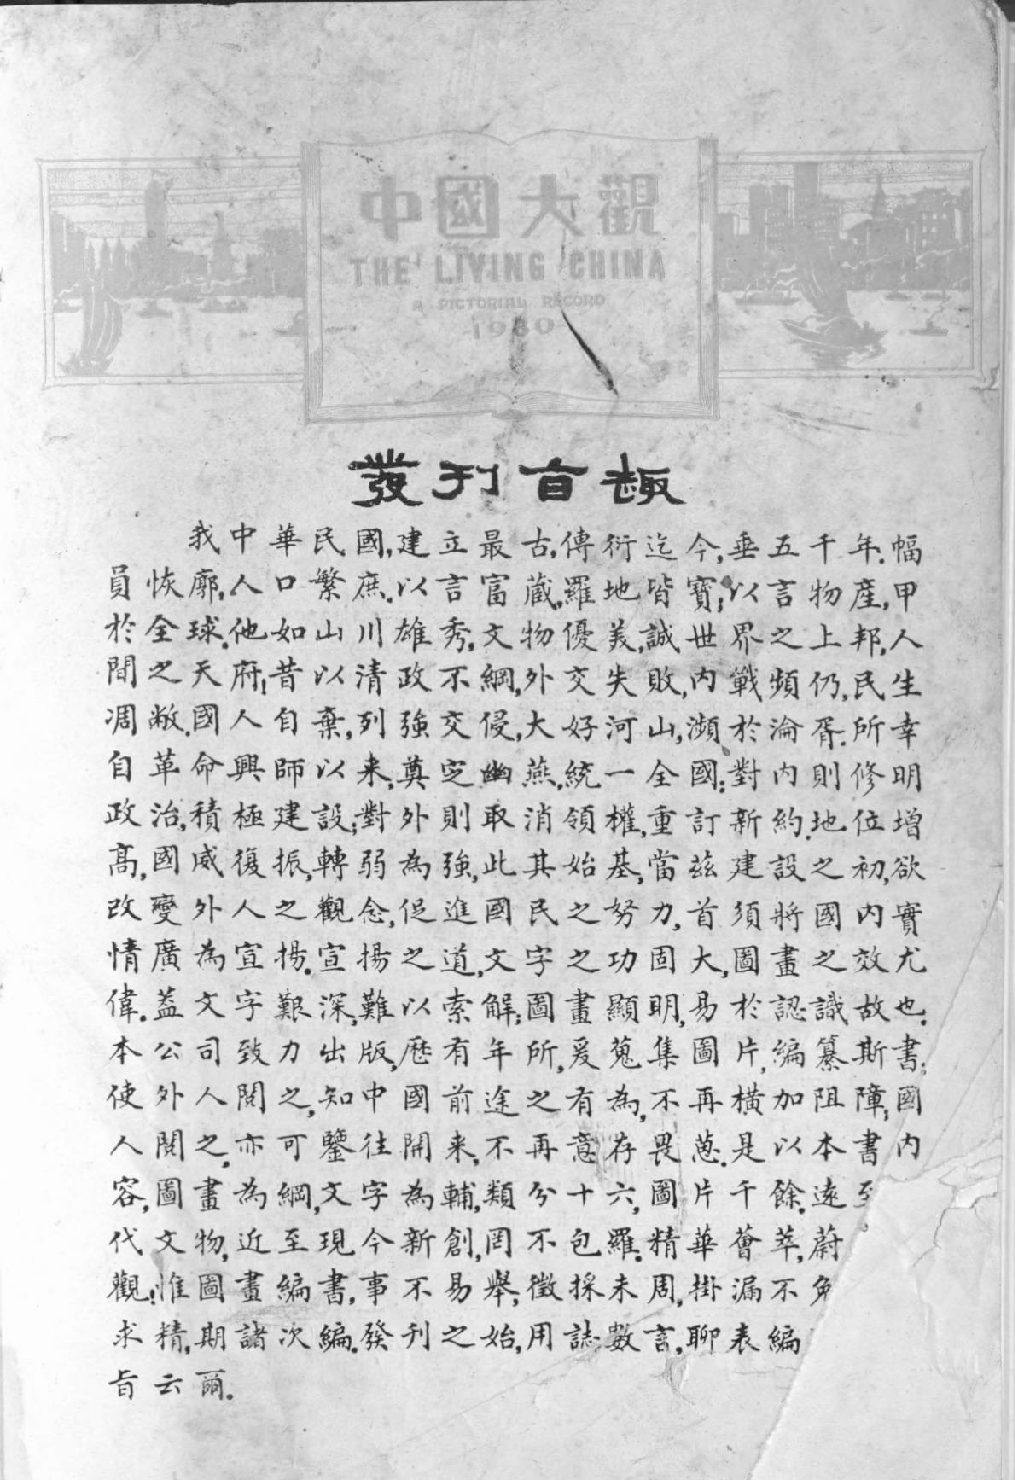 中國大觀
THE LIVING CHINA
A PICTORIAL RECORD
1930
發刊旨趣
我中華民國,建立最古,傳衍迄今,垂五千年.幅
員恢廓,人口繁庶.以言富藏,羅地皆寶;以言物產,甲
於全球.他如山川雄秀,文物優美,誠世界之上邦,人
間之天府,昔以清政不綱,外交失敗,內戰頻仍,民生
凋敝.國人自棄,列強交侵,大好河山,瀕於淪胥.所幸
自革命興師以來,奠定幽燕,統一全國;對內則修明
政治,積極建設;對外則取消領權,重訂新約.地位增
高,國威復振,轉弱為強,此其始基,當茲建設之初,欲
改變外人之觀念,促進國民之努力,首須將國內實
情廣為宣揚.宣揚之道,文字之功固大,圖畫之效尤
偉.蓋文字艱深,難以索解;圖畫顯明,易於認識故也.
本公司致力出版,歷有年所,爰蒐集圖片,編纂斯書;
使外人閱之,知中國前途之有為,不再橫加阻障;國
人閱之,亦可鑒往開來,不再意存畏葸.是以本書內
容,圖畫為綱,文字為輔,類分十六,圖片千餘.遠至
代文物,近至現今新創,罔不包羅.精華薈萃,蔚
觀;惟圖畫編書,事不易舉,徵採未周,掛漏不免
求精,期諸次編.發刊之始,用誌數言,聊表編
旨云爾.